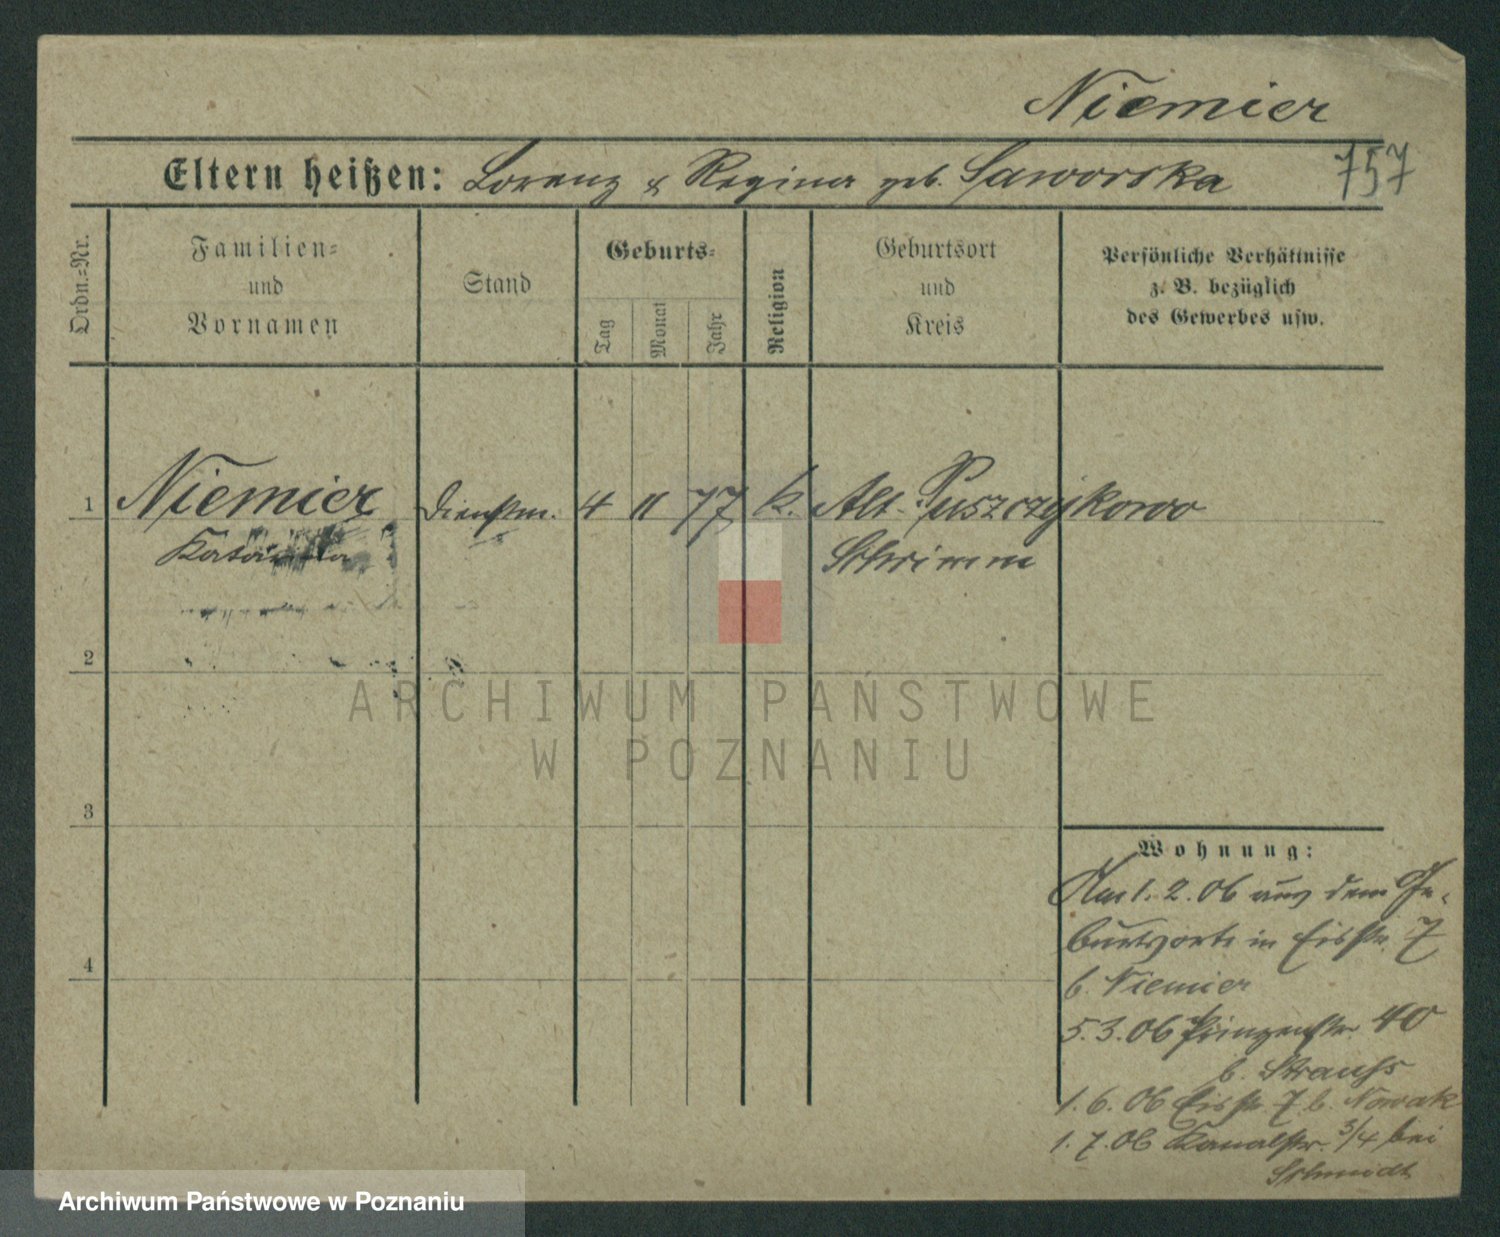 Niemier
Eltern heißen: Lorenz & Regina geb. Saworska 757
Ordn.-Nr.
Familien-
und
Vornamen
Stand
Geburts-
Tag
Monat
Jahr
Religion
Geburtsort
und
Kreis
Persönliche Verhältnisse
z. B. bezüglich
des Gewerbes usw.
1 Niemier Dienstm. 4 11 77 k. Alt-Puszczykowo
Schrimm
2
ARCHIWUM PAŃSTWOWE
W POZNANIU
3
Wohnung:
Am 1. 2. 06 aus dem Ge-
burtsorte in Eisstr. 7
b. Niemier
5. 3. 06 Prinzenstr. 40
b. Strauss
1. 6. 06 Eisstr. 7 b. Nowak
1. 7. 06 Kanalstr. 3/4 bei
Schmidt
4
Archiwum Państwowe w Poznaniu